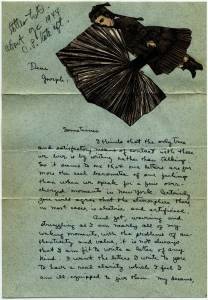 letter to
about 9/2 1949
Dear
Joseph,
Sometimes
I think that the only true
and satisfactory means of contact with those
we love is by writing rather than talking
So it seems to me that our letters are far
more the real barometer of our feelings
than when we speak for a few over-
charged moments in New York. Certainly
you will agree that the atmosphere there
in most cases is electric and artificial.
And yet, worrying and
struggling as I am nearly all of my
waking moments with the problems of au-
thenticity and value, it is not always
that I am fit to write a letter of any
kind. I want the letters I write to you
to have a real clarity which I feel I
am ill equipped to give them. My dreams,